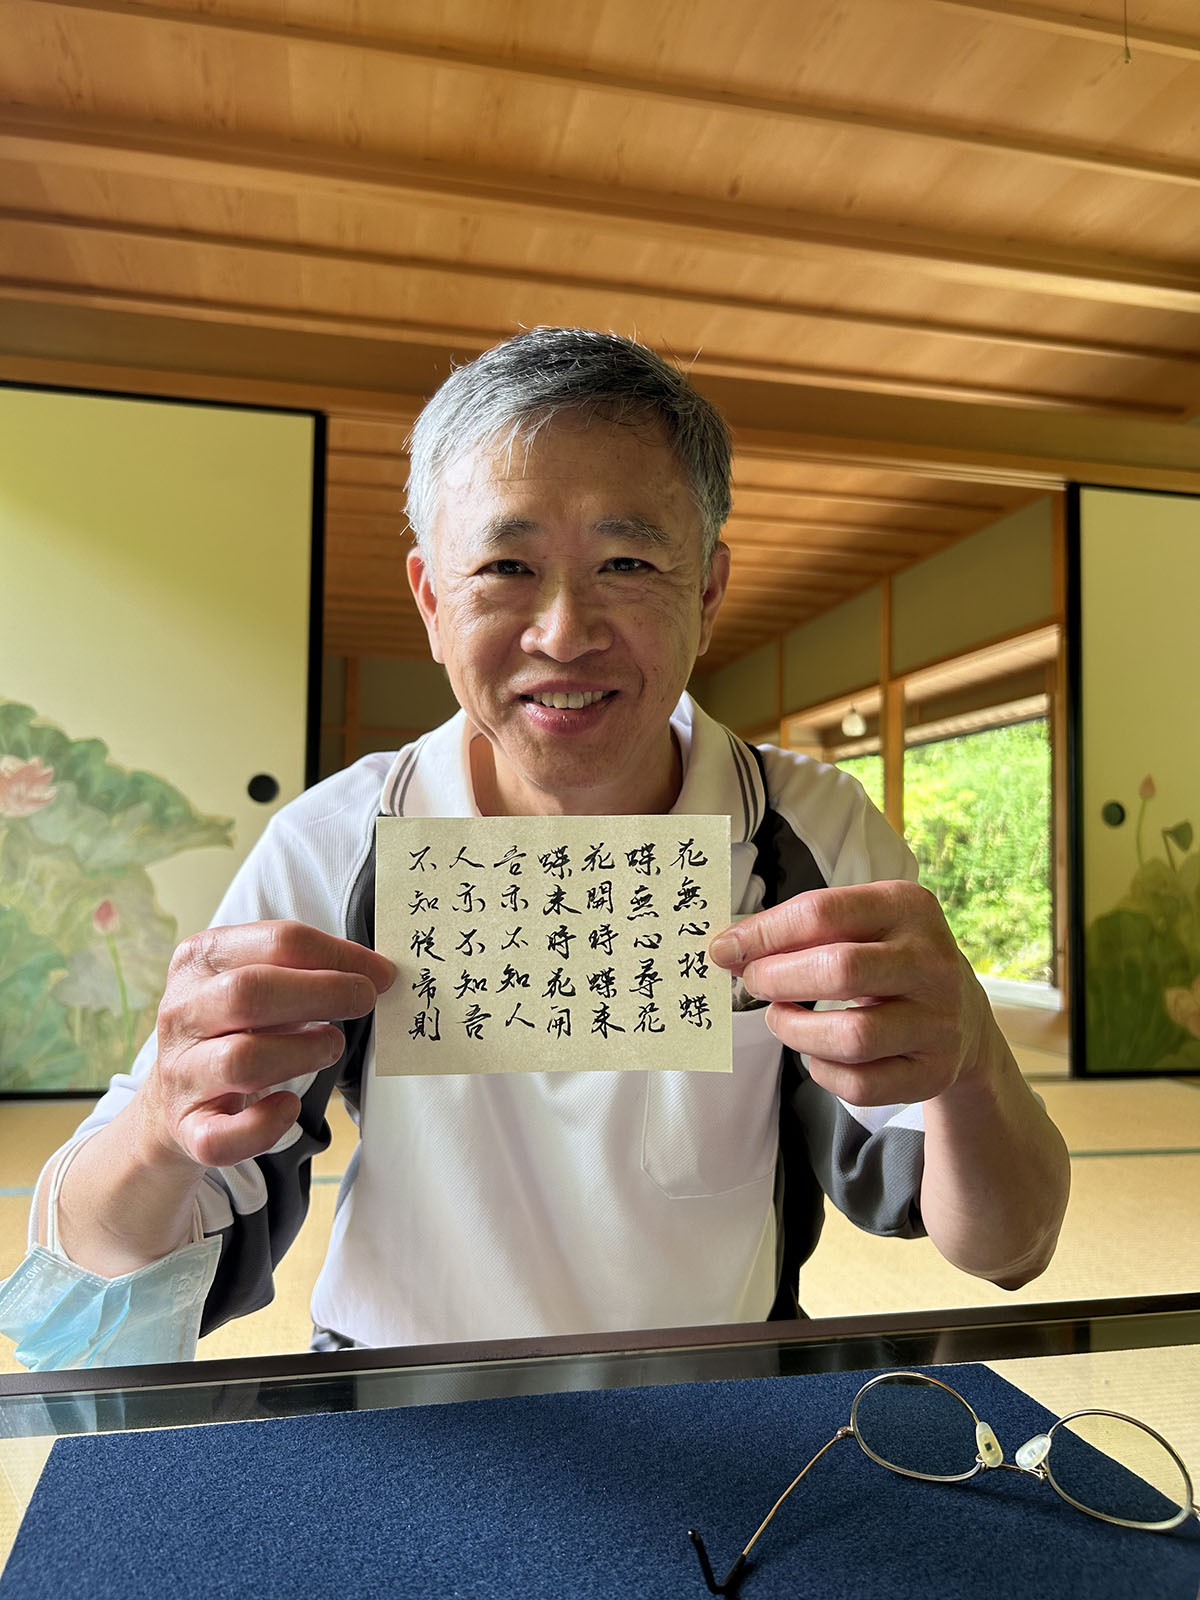 花無心招蝶
蝶無心尋花
花開時蝶来
蝶来時花開
吾亦不知人
人亦不知吾
不知従帝則